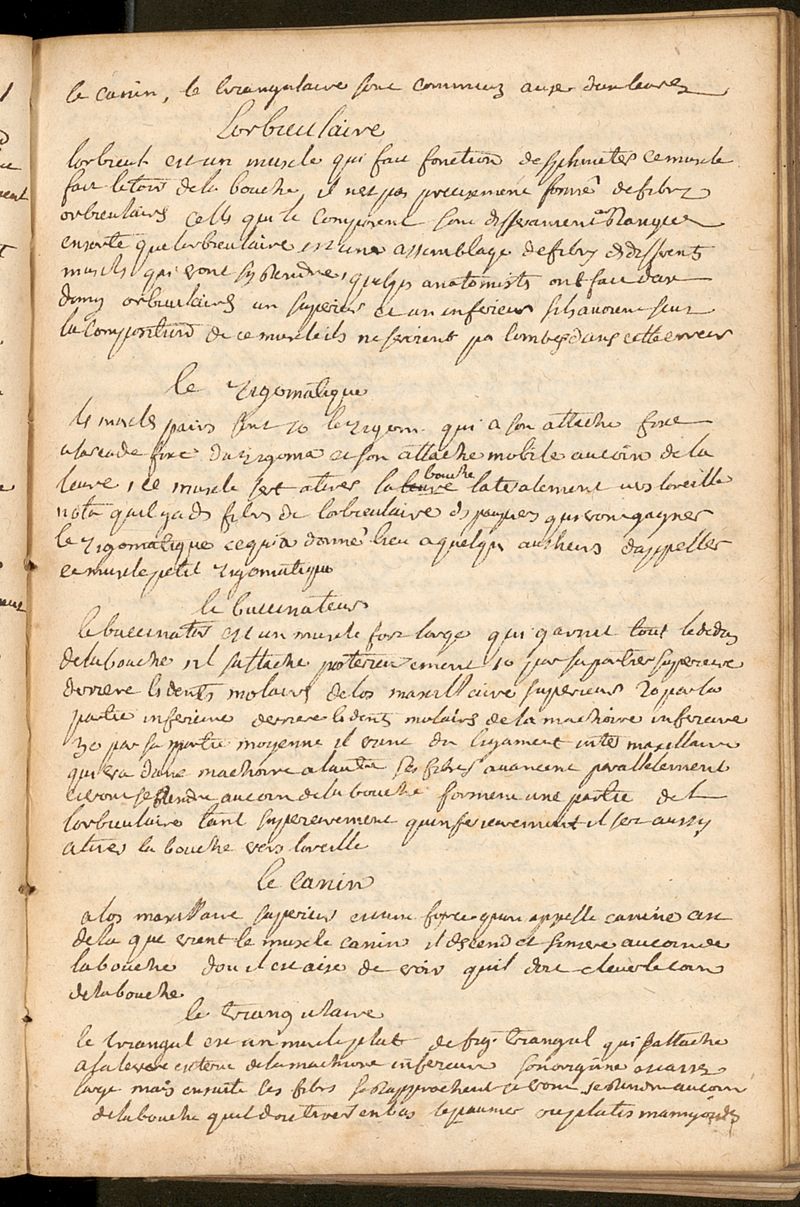 le canin, le triangulaire sont communs aux deux levres
Lorbiculaire
lorbicul est un muscle qui fait fonction de sphincter ce muscle
fait le tour de la bouche, il nest pas precisement formé de fibres
orbiculaires celles qui le composent sont differament rangues
ensorte que lorbiculaire est une assemblage de fibres de differents
muscles qui vont sy rendre, quelqs anatomists ont fait
deux orbiculaires un superieur et un inferieur sils avoient sceu
la composition de ce muscle ils ne seroient pas tombés dans cette erreur
le zigomatique
les muscles pairs sont 1o le zigom. qui a son attache fixe
a la face du zigoma et son attache mobile au coin de la
levre, ce muscle sert a tirer la bouche lateralement vers loreille
nota quil y a ds fibres de lorbiculaire ds paupieres qui vont gagner
le zigomatique ce qui a donné lieu a quelqs autheurs dappeller
ce muscle petit zigomatique
le buccinateur
le buccinater est un muscle fort large qui garnit tout le dedans
de la bouche, il sattache posterieurement 1o par sa partie superieure
derriere ls dents molaires de los maxillaire superieur 2o par la
partie inferieure derriere ls dents molaires de la machoire inferieure
3o par sa partie moyenne il vient du ligament inter maxillaire
qui va dune machoire a lautre ses fibres avancent parallelement
et vont se rendre au coin de la bouche forment une partie de
lorbiculaire tant superieurement quinferieurement il sert aussy
a tirer la bouche vers loreille
le canin
a los maxillaire superieur est une fosse quon appelle canine
de la que vient le muscle canin il descend et sinsere au coin de
la bouche dou il est aisé de voir quil doit elever le coin
de la bouche
le triangulaire
le triangul est un muscle plat de fig. triangul qui sattache
a la levre externe de la machoire inferieure son origine est assez
large mais ensuite ses fibres se rapprochent et vont se rendre au coin
de la bouche quil doit tirer en bas le peaucier ou platisma myoides